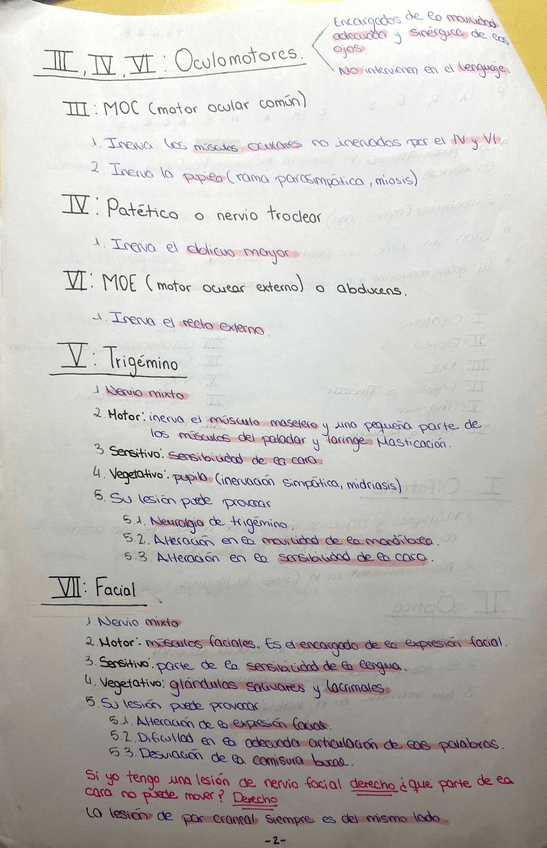 III, IV, VI: Oculomotores.
Encargados de la movilidad
adecuada y sinérgica de los
ojos.
No intervienen en el lenguaje.
III: MOC (motor ocular común)
1. Inerva los músculos oculares no inervados por el IV y VI
2. Inerva la pupila (rama parasimpática, miosis)
IV: Patético o nervio troclear
1. Inerva el oblicuo mayor
VI: MOE (motor ocular externo) o abducens.
1. Inerva el recto externo
V: Trigémino
1 Nervio mixto
2 Motor: inerva el músculo masetero y una pequeña parte de
los músculos del paladar y laringe. Masticación.
3 Sensitivo: sensibilidad de la cara
4. Vegetativo: pupila (inervación simpática, midriasis)
5. Su lesión puede provocar
5.1. Neuralgia de trigémino.
5.2. Alteración en la movilidad de la mandíbula.
5.3. Alteración en la sensibilidad de la cara.
VII: Facial
1 Nervio mixto
2. Motor: músculos faciales. Es el encargado de la expresión facial.
3. Sensitivo: parte de la sensibilidad de la lengua.
4. Vegetativo: glándulas salivares y lacrimales
5. Su lesión puede provocar:
5.1. Alteración de la expresión facial.
5.2. Dificultad en la adecuada articulación de las palabras.
5.3. Desviación de la comisura bucal.
Si yo tengo una lesión de nervio facial derecho ¿que parte de la
cara no puede mover? Derecho
La lesión de par craneal siempre es del mismo lado.
-2-